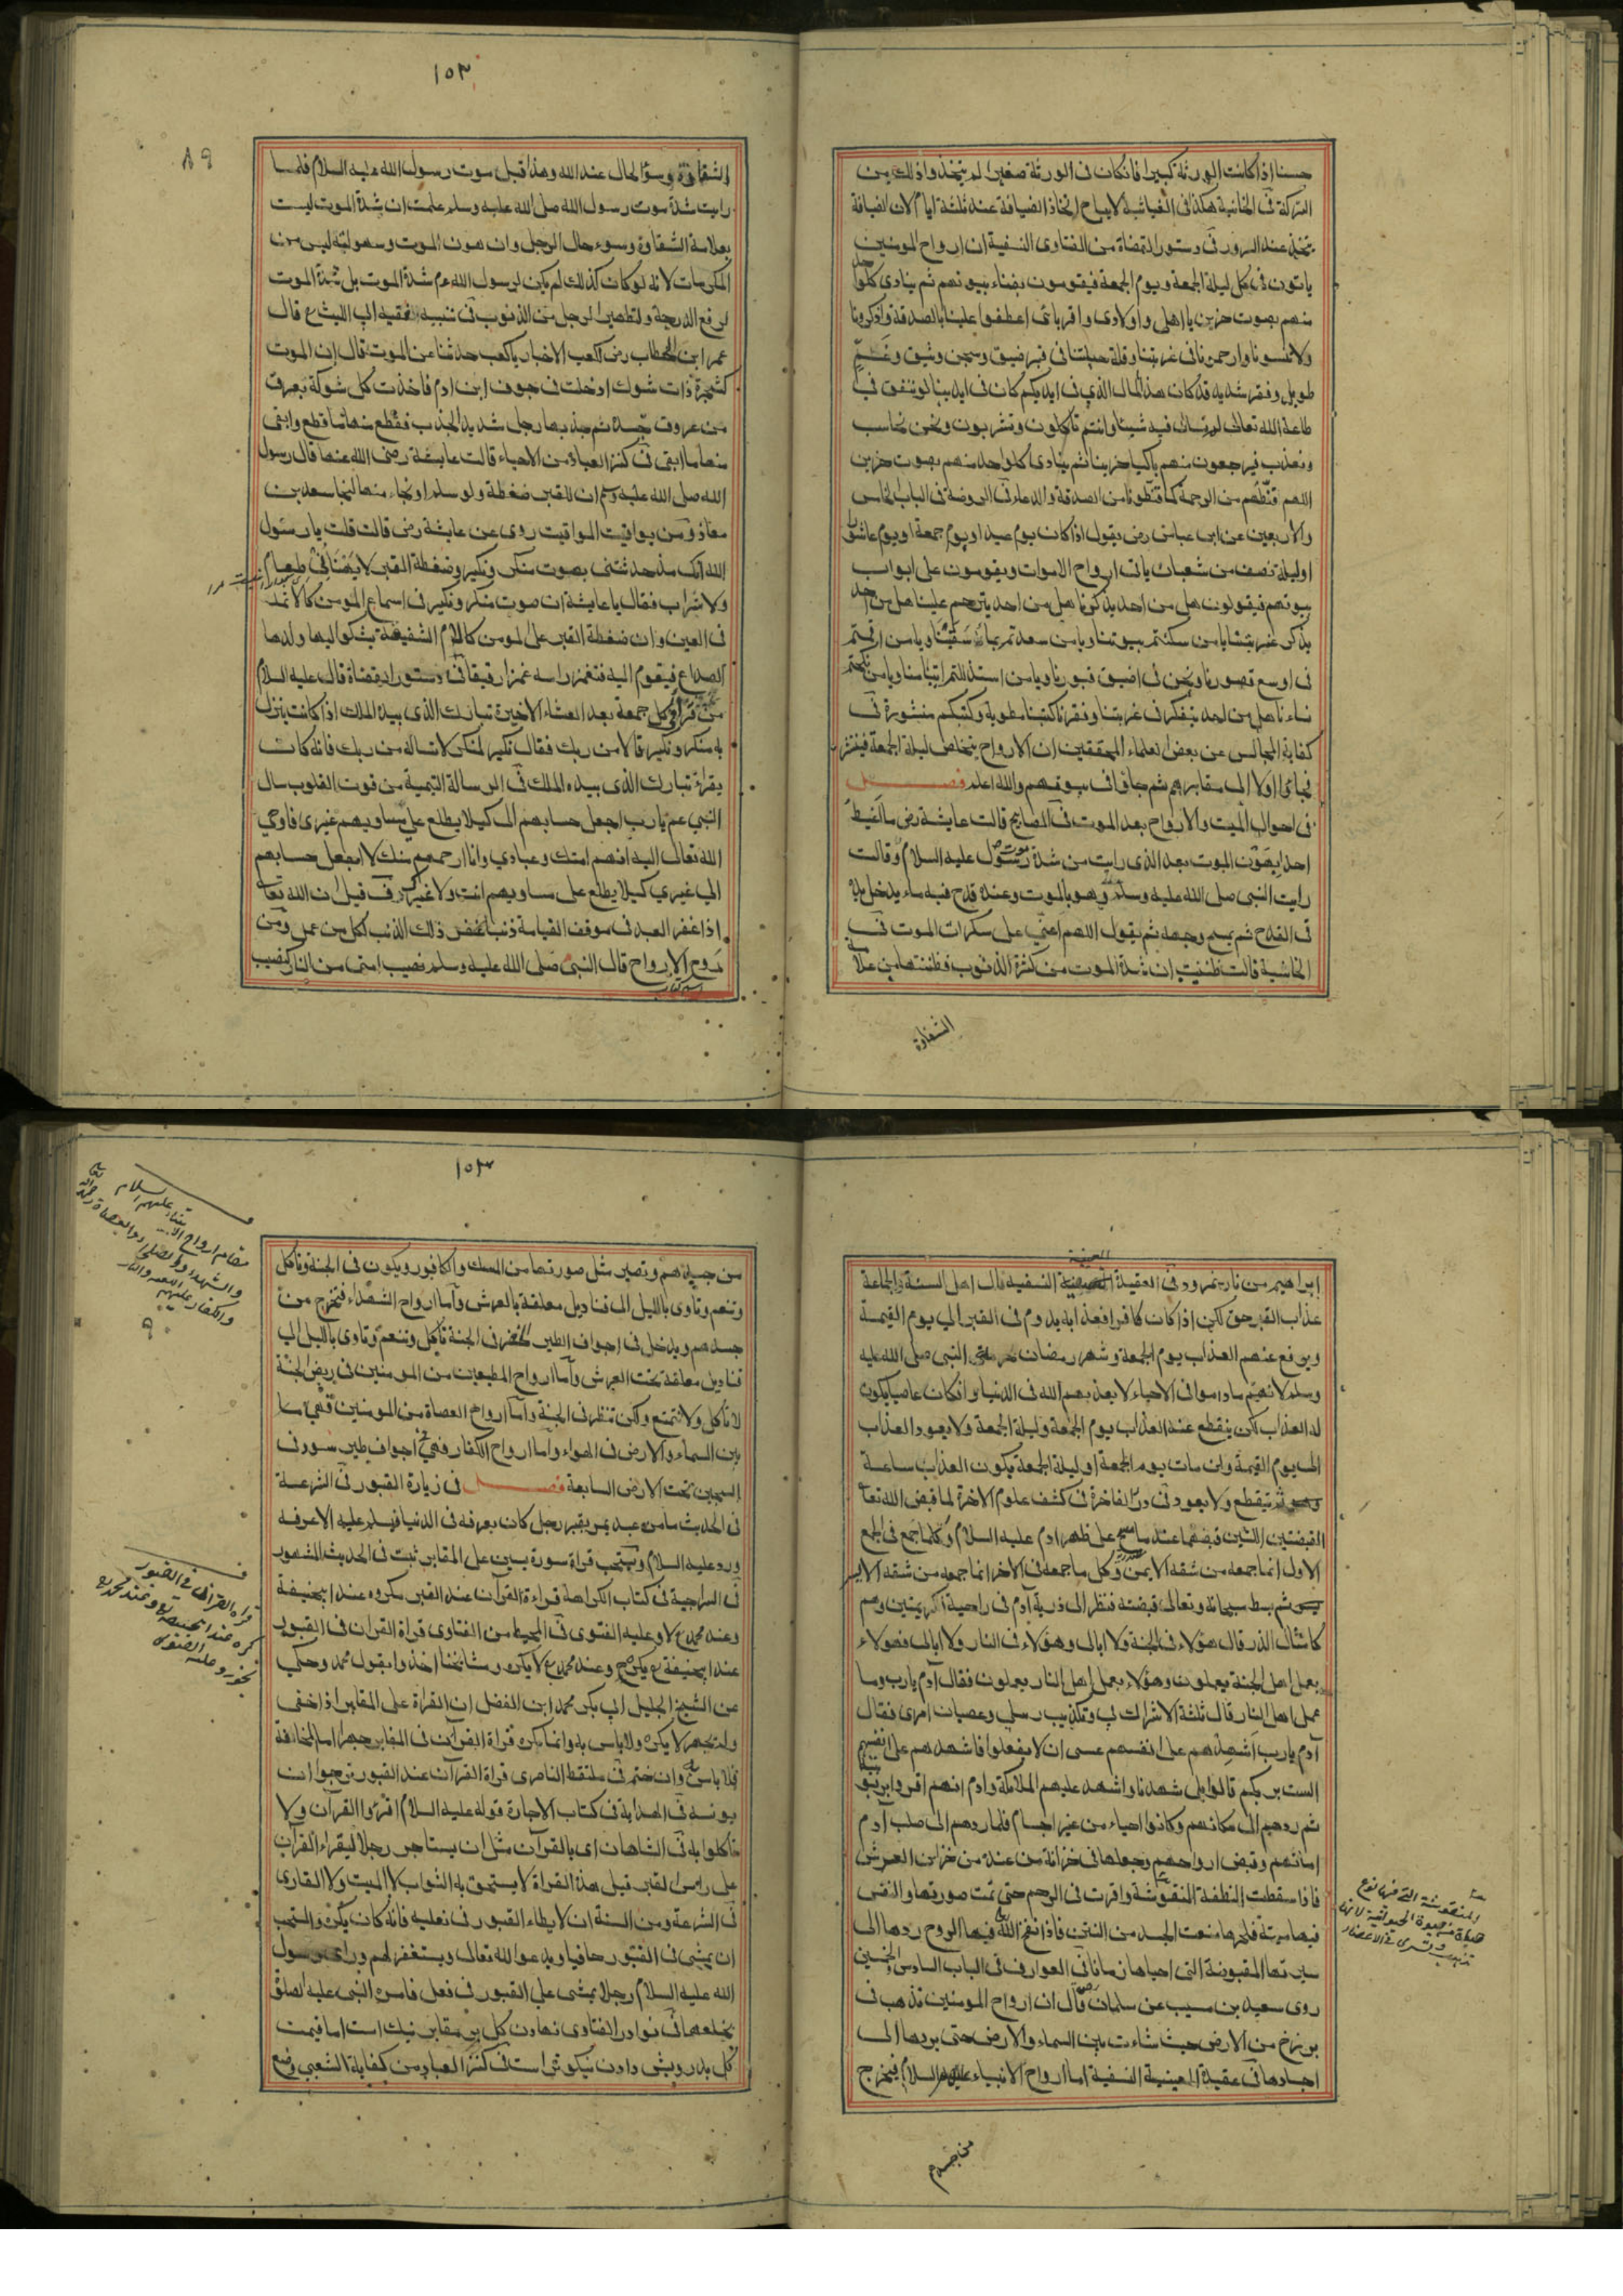 حسنا اذا كانت الورثة كبيرا فان كان فى الورثة صغيرا لم يتخذوا ذلك من
التركة فى الخانية هكذا فى الغياثية لا يباح اتخاذ الضيافة عند ثلثة ايام لان الضيافة
يتخذ عند السرور فى دستور القضاة من الفتاوى النسفية ان ارواح المومنين
ياتون فى كل ليلة الجمعة ويوم الجمعة فيقومون بفناء بيوتهم ثم ينادى كل واحد
منهم بصوت حزين يا اهلى واولادى واقربائى اعطفوا علينا بالصدقة واذكرونا
ولا تنسونا وارحمونا فى غربتنا وقلة حيلتنا فى قبر ضيق وسجن وثيق وغم
طويل وفقر شديد قد كان هذا المال الذى فى ايديكم كان فى ايدينا لو ننفق فى
طاعة الله تعالى فيه شيئا وانتم تاكلون وتشربون ونحن نحاسب
ونعذب فيرجعون منهم باكيا حزينا ثم ينادى كل واحد منهم بصوت حزين
اللهم قنطهم من الرحمة كما قنطونا من الصدقة والدعاء فى الروضة فى الباب الخامس
والاربعين عن ابن عباس رض يقول اذا كان يوم عيد او يوم جمعة او يوم عاشورا
او ليلة نصف من شعبان ياتى ارواح الاموات ويقومون على ابواب
بيوتهم فيقولون هل من احد يذكرنا هل من احد يترحم علينا هل من احد
يذكر غربتنا يا من سكنتم بيوتنا ويا من سعدتم بما شقينا ويا من اقمتم
فى اوسع قصورنا ونحن فى اضيق قبورنا ويا من استذللتم ايتامنا ويا من نكحتم
نساءنا هل من احد يتفكر فى غربتنا وفقرنا كتبنا مطوية وكتبكم منشورة فى
كفاية المجالس عن بعض العلماء المحققين ان الارواح يتخلص ليلة الجمعة
فجاؤا اولا الى مقابرهم ثم جاؤا فى بيوتهم والله اعلم فصل
فى احوال الميت والارواح بعد الموت فى المصابيح قالت عايشة رض ما اغبط
احدا بهون الموت بعد الذى رايت من شدة موت رسول عليه السلام وقالت
رايت النبى صلى الله عليه وسلم وهو بالموت وعنده قدح فيه ماء يدخل يده
فى القدح ثم يمسح وجهه ثم يقول اللهم اعنى على سكرات الموت فى
الحاشية قالت ظننت ان شدة الموت من كثرة الذنوب فظننتها من علامة
الشقاوة
١٥٣
٨٩
الشقاوة وسؤ الحال عند الله وهذا قبل موت رسول الله عليه السلام فلما
رايت شدة موت رسول الله صلى الله عليه وسلم علمت ان شدة الموت ليست
بعلامة الشقاوة وسوء حال الرجل وان هون الموت وسهولته ليس من
المكرمات لانه لو كان كذلك لم يكن لرسول الله عم شدة الموت بل شدة الموت
لرفع الدرجة ولتطهير الرجل من الذنوب فى تنبيه الفقيه ابى الليث ع قال
عمر ابن الخطاب رض لكعب الاخبار يا كعب حدثنا عن الموت قال ان الموت
كشجرة ذات شوك ادخلت فى جوف ابن ادم فاخذت كل شوكة بعرق
من عروق جسده ثم جذبها رجل شديد الجذب فقطع منها ما قطع وابقى
منها ما ابقى فى كنز العباد من الاحياء قالت عايشة رضى الله عنها قال رسول
الله صلى الله عليه وسلم ان للقبر ضغطة ولو سلم او نجاء منها لنجا سعد بن
معاذ ومن يواقيت المواقيت روى عن عايشة رض قالت قلت يا رسول
الله انك مذ حدثتنى بصوت منكر ونكير وضغطة القبر لا طعام
ولا شراب فقال يا عايشة ان صوت منكر ونكير فى اسماع المومن كالاثمد
فى العين وان ضغطة القبر على المومن كالام الشفيقة يشكو اليها ولدها
الصداع فيقوم اليه فتغمز راسه غمزا رقيقا فى دستور القضاة قال عليه السلام
من قرا فى كل جمعة بعد العشاء الاخيرة تبارك الذى بيده الملك اذا كانت ينزل
به منكر ونكير قالا من ربك فقال نكير لمنكر لا تساله من ربك فانه كان
يقراء تبارك الذى بيده الملك فى الرسالة التيمية من قوت القلوب سال
النبى عم يا رب اجعل حسابهم الى كيلا يطلع على مساويهم غيرى فاوحى
الله تعالى اليه انهم امتك وعبادى وانا ارحم بهم منك لا اجعل حسابهم
الى غيرى كيلا يطلع على مساويهم انت ولا غيرك فى قيل ان الله تعالى
اذا غفر العبد فى موقف القيامة ذنبا غفر ذلك الذنب لكل من عمل ومن
روح الارواح قال النبى صلى الله عليه وسلم نصيب امتى من النار كنصيب
ابراهيم من نار نمرود فى العقيدة النسفيه قال اهل السنة والجماعة
عذاب القبر حق لكن اذا كان كافرا فعذابه يدوم فى القبر الى يوم القيمة
ويرفع عنهم العذاب يوم الجمعة وشهر رمضان النبى صلى الله عليه
وسلم لانهم ماداموا فى الاحياء لا يعذبهم الله فى الدنيا وان كان عاصيا يكون
له العذاب لكن ينقطع عنه العذاب يوم الجمعة وليلة الجمعة ولا يعود العذاب
الى يوم القيمة وان مات يوم الجمعة او ليلة الجمعة يكون العذاب ساعة
ينقطع ولا يعود فى در الفاخرة فى كشف علوم الاخرة لما قبض الله تعالى
القبضتين اللتين قبضهما عند ما مسح على ظهر ادم عليه السلام وكلما جمع فى الجمع
الاول انما جمعه من شقه الايمن وكل ما جمعه فى الاخر انما جمعه من شقه الايسر
ثم بسط سبحانه وتعالى قبضته فنظر الى ذرية آدم فى راحية الكريمتين وهم
كامثال الذر قال هؤلاء فى الجنة ولا ابالى وهؤلاء فى النار ولا ابالى فهولاء
بعمل اهل الجنة يعملون وهؤلاء بعمل اهل النار يعملون فقال آدم يا رب وما
عمل اهل النار قال ثلثة الاشراك بى وتكذيب رسلى وعصيان امرى فقال
آدم يا رب اشهدهم على انفسهم عسى ان لا يفعلوا فاشهدهم على انفسهم
الست بربكم قالوا بلى شهدنا واشهد عليهم الملائكة وادم انهم اقروا بربوبيته
ثم ردهم الى مكانهم وكانوا احياء من غير اجسام فلما ردهم الى صلب ادم
اماتهم وقبض ارواحهم وجعلها فى خزانة من عنده من خزاين العرش
فاذا سقطت النطفة المنقوشة واقرت فى الرحم حتى تمت صورتها والنفس
فيها ميتة منعت الجسد من النتن فاذا نفخ الله فيها الروح ردها الى
سيرتها المقبوضة التى احياها زمانا فى العوارف فى الباب السادس والخمسين
روى سعيد بن مسيب عن سلمان رض قال ان ارواح المومنين تذهب فى
برزخ من الارض حيث شاءت بين السماء والارض حتى يردها الى
اجسادها فى عقيدة المعينية النسفية اما ارواح الانبياء عليهم السلام فيخرج
من جسدهم
١٥٤
من جسدهم وتصير مثل صورتها من المسك والكافور ويكون فى الجنة وتاكل
وتنعم وتاوى بالليل الى قناديل معلقة بالعرش واما ارواح الشهداء فتخرج من
جسدهم ويدخل فى اجواف الطير الخضر فى الجنة تاكل وتنعم وتاوى بالليل الى
قناديل معلقة تحت العرش واما ارواح المطيعين من المومنين فى ربض الجنة
لا تاكل ولا تتمتع ولكن تنظر فى الجنة واما ارواح العصاة من المومنين فهى ما
بين السماء والارض فى الهواء واما ارواح الكفار فهى فى اجواف طير سود فى
السجين تحت الارض السابعة فصل فى زيارة القبور فى الشرعة
فى الحديث ما من عبد يمر بقبر رجل كان يعرفه فى الدنيا فيسلم عليه الا عرفه
ورد عليه السلام ويستحب قراة سورة يسين على المقابر ثبت فى الحديث المشهور
فى السراجية فى كتاب الكراهة قراءة القرآن عند القبر مكروه عند ابيحنيفة
وعند محمد ع لا وعليه الفتوى فى المحيط من الفتاوى قراة القران فى القبور
عند ابيحنيفة ع يكره وعند محمد ع لا يكره ومشائخنا اخذوا بقول محمد وحكى
عن الشيخ الجليل ابى بكر محمد ابن الفضل ان القراة على المقابر اذا اخفى
ولم يجهر لا يكره ولا باس به وانما يكره قراة القرآن فى المقابر جهرا اما المخافة
فلا باس به وان ختم فى ملتقط الناصرى قراة القرآن عند القبور
فى الهداية فى كتاب الاجارة قوله عليه السلام اقرؤا القرآن ولا
تاكلوا به فى الشاهان اى بالقرآن مثل ان يستاجر رجلا ليقراء القرآن
على راس القبر قيل هذه القراة لا يستحق به الثواب لا الميت ولا القارى
فى الشرعة ومن السنة ان لا يطاء القبور فى نعليه فانه كان يكره والمستحب
ان يمشى فى القبور حافيا ويدعوا الله تعالى ويستغفر لهم وراى رسول
الله عليه السلام رجلا يمشى على القبور فى نعل فامره النبى عليه الصلوة
بخلعها فى نوادر الفتاوى نهادن كل بر مقابر نيك است اما قيمت
كل بدرويش دادن نيكوتر است فى كنز العباد من كفاية الشعبى وضع
مقام ارواح الانبياء عليهم السلام
قراة القران فى القبور